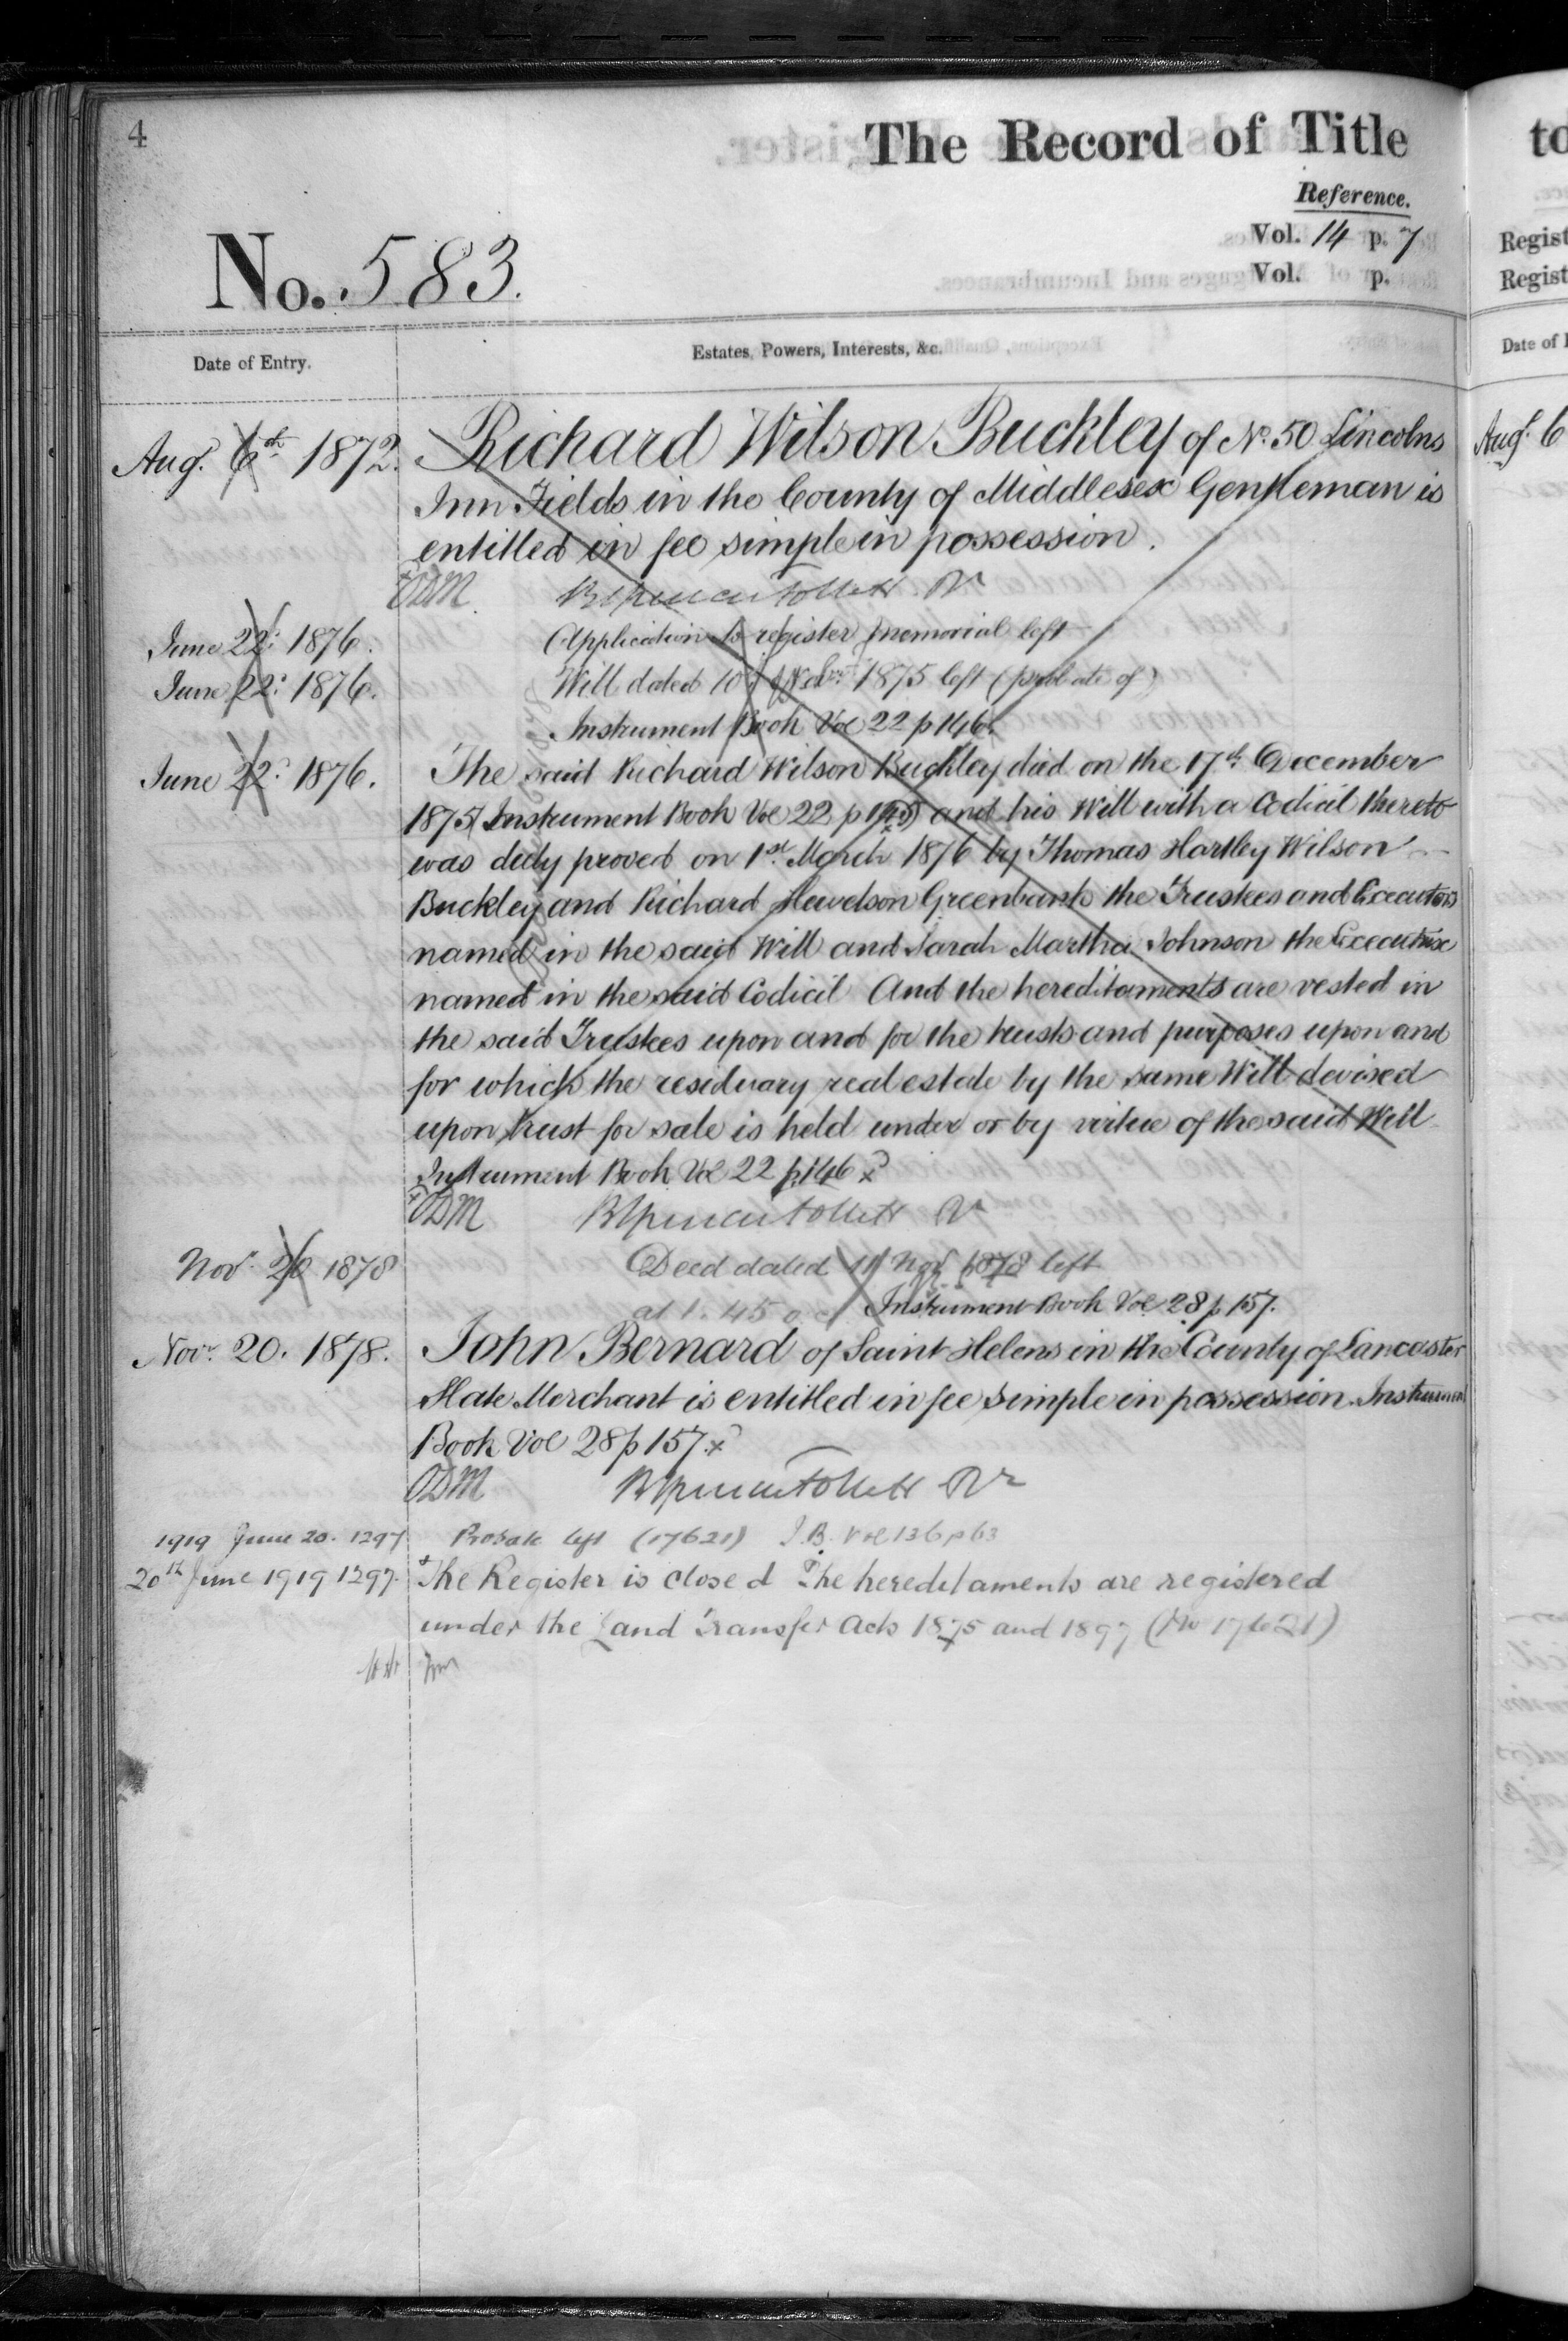 4
The Record of Title
Reference.
Vol. 14 p. 7
Vol. p.
No. 583.
Date of Entry.
Estates, Powers, Interests, &c.
Aug. 6th 1872. Richard Wilson Buckley of No. 50 Lincolns
Inn Fields in the County of Middlesex Gentleman is
entitled in fee simple in possession.
ODM
June 22. 1876. Application to register memorial left
June 22. 1876. Will dated 10 1875 left (probate of)
Instrument Book Vol 22 p 146.
June 22. 1876. The said Richard Wilson Buckley died on the 17th December
1875 (Instrument Book Vol 22 p ) and his Will with a Codicil thereto
was duly proved on 1st March 1876 by Thomas Hartley Wilson
Buckley and Richard Hewetson Greenbank the Trustees and Executors
named in the said Will and Sarah Martha Johnson the Executrix
named in the said Codicil And the hereditaments are vested in
the said Trustees upon and for the trusts and purposes upon and
for which the residuary real estate by the same Will devised
upon trust for sale is held under or by virtue of the said Will
Instrument Book Vol 22 p 146 x
ODM
Nov. 20 1878 Deed dated 11 Nov 1878 left
at 1.45 Instrument Book Vol 28 p 157.
Novr. 20. 1878. John Bernard of Saint Helens in the County of Lancaster
Slate Merchant is entitled in fee simple in possession. Instrument
Book Vol 28 p 157. x
ODM
1919 June 20. 1297 Probate left (17621) I.B. Vol 136 p 63
20th June 1919 1297. The Register is closed The hereditaments are registered
under the Land Transfer Acts 1875 and 1897 (No 17621)
to
Regist
Regist
Date of
Aug. 6